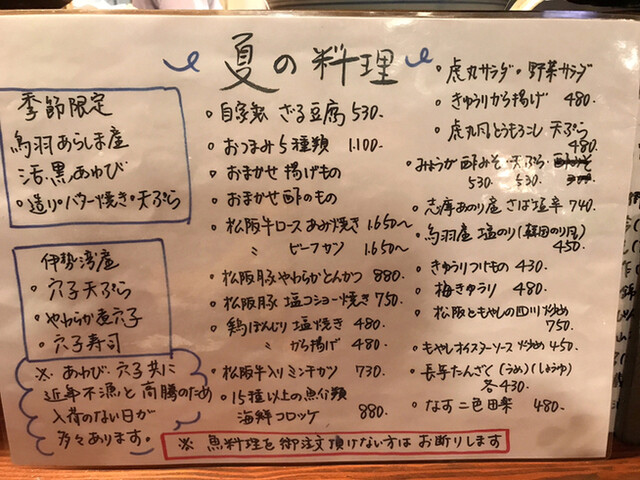 夏の料理
季節限定
鳥羽あらしま産
活黒あわび
・造り・バター焼き・天ぷら
伊勢湾産
・穴子天ぷら
・やわらか煮穴子
・穴子寿司
※あわび、穴子共に
近年不漁と高騰のため
入荷のない日が
多々あります。
・自家製 ざる豆腐 530.
・おつまみ5種類 1.100.
・おまかせ 揚げもの
・おまかせ 酢のもの
・松阪牛ロース あみ焼き 1.650〜
〃 ビーフカツ 1.650〜
・松阪豚 やわらかとんかつ 880.
・松阪豚 塩コショー焼き 750.
・鶏ぼんじり 塩焼き 480.
〃 から揚げ 480.
・松阪牛入りミンチカツ 730.
・15種以上の魚介類
海鮮コロッケ 880.
・虎丸サラダ・野菜サラダ
・きゅうりから揚げ 480.
・虎丸風とうもろこし 天ぷら
480.
・みょうが 酢みそ・天ぷら・
530. 530.
・志摩あのり産 さば塩辛 740.
・鳥羽産 塩のり(韓国のり風)
450.
・きゅうりつけもの 430.
・梅きゅうり 480.
・松阪ともやしの四川炒め
750.
・もやしオイスターソース炒め 450.
・長芋たんざく(うめ)(しょうゆ)
各430.
・なす二色田楽 480.
※ 魚料理を御注文頂けない方は お断りします